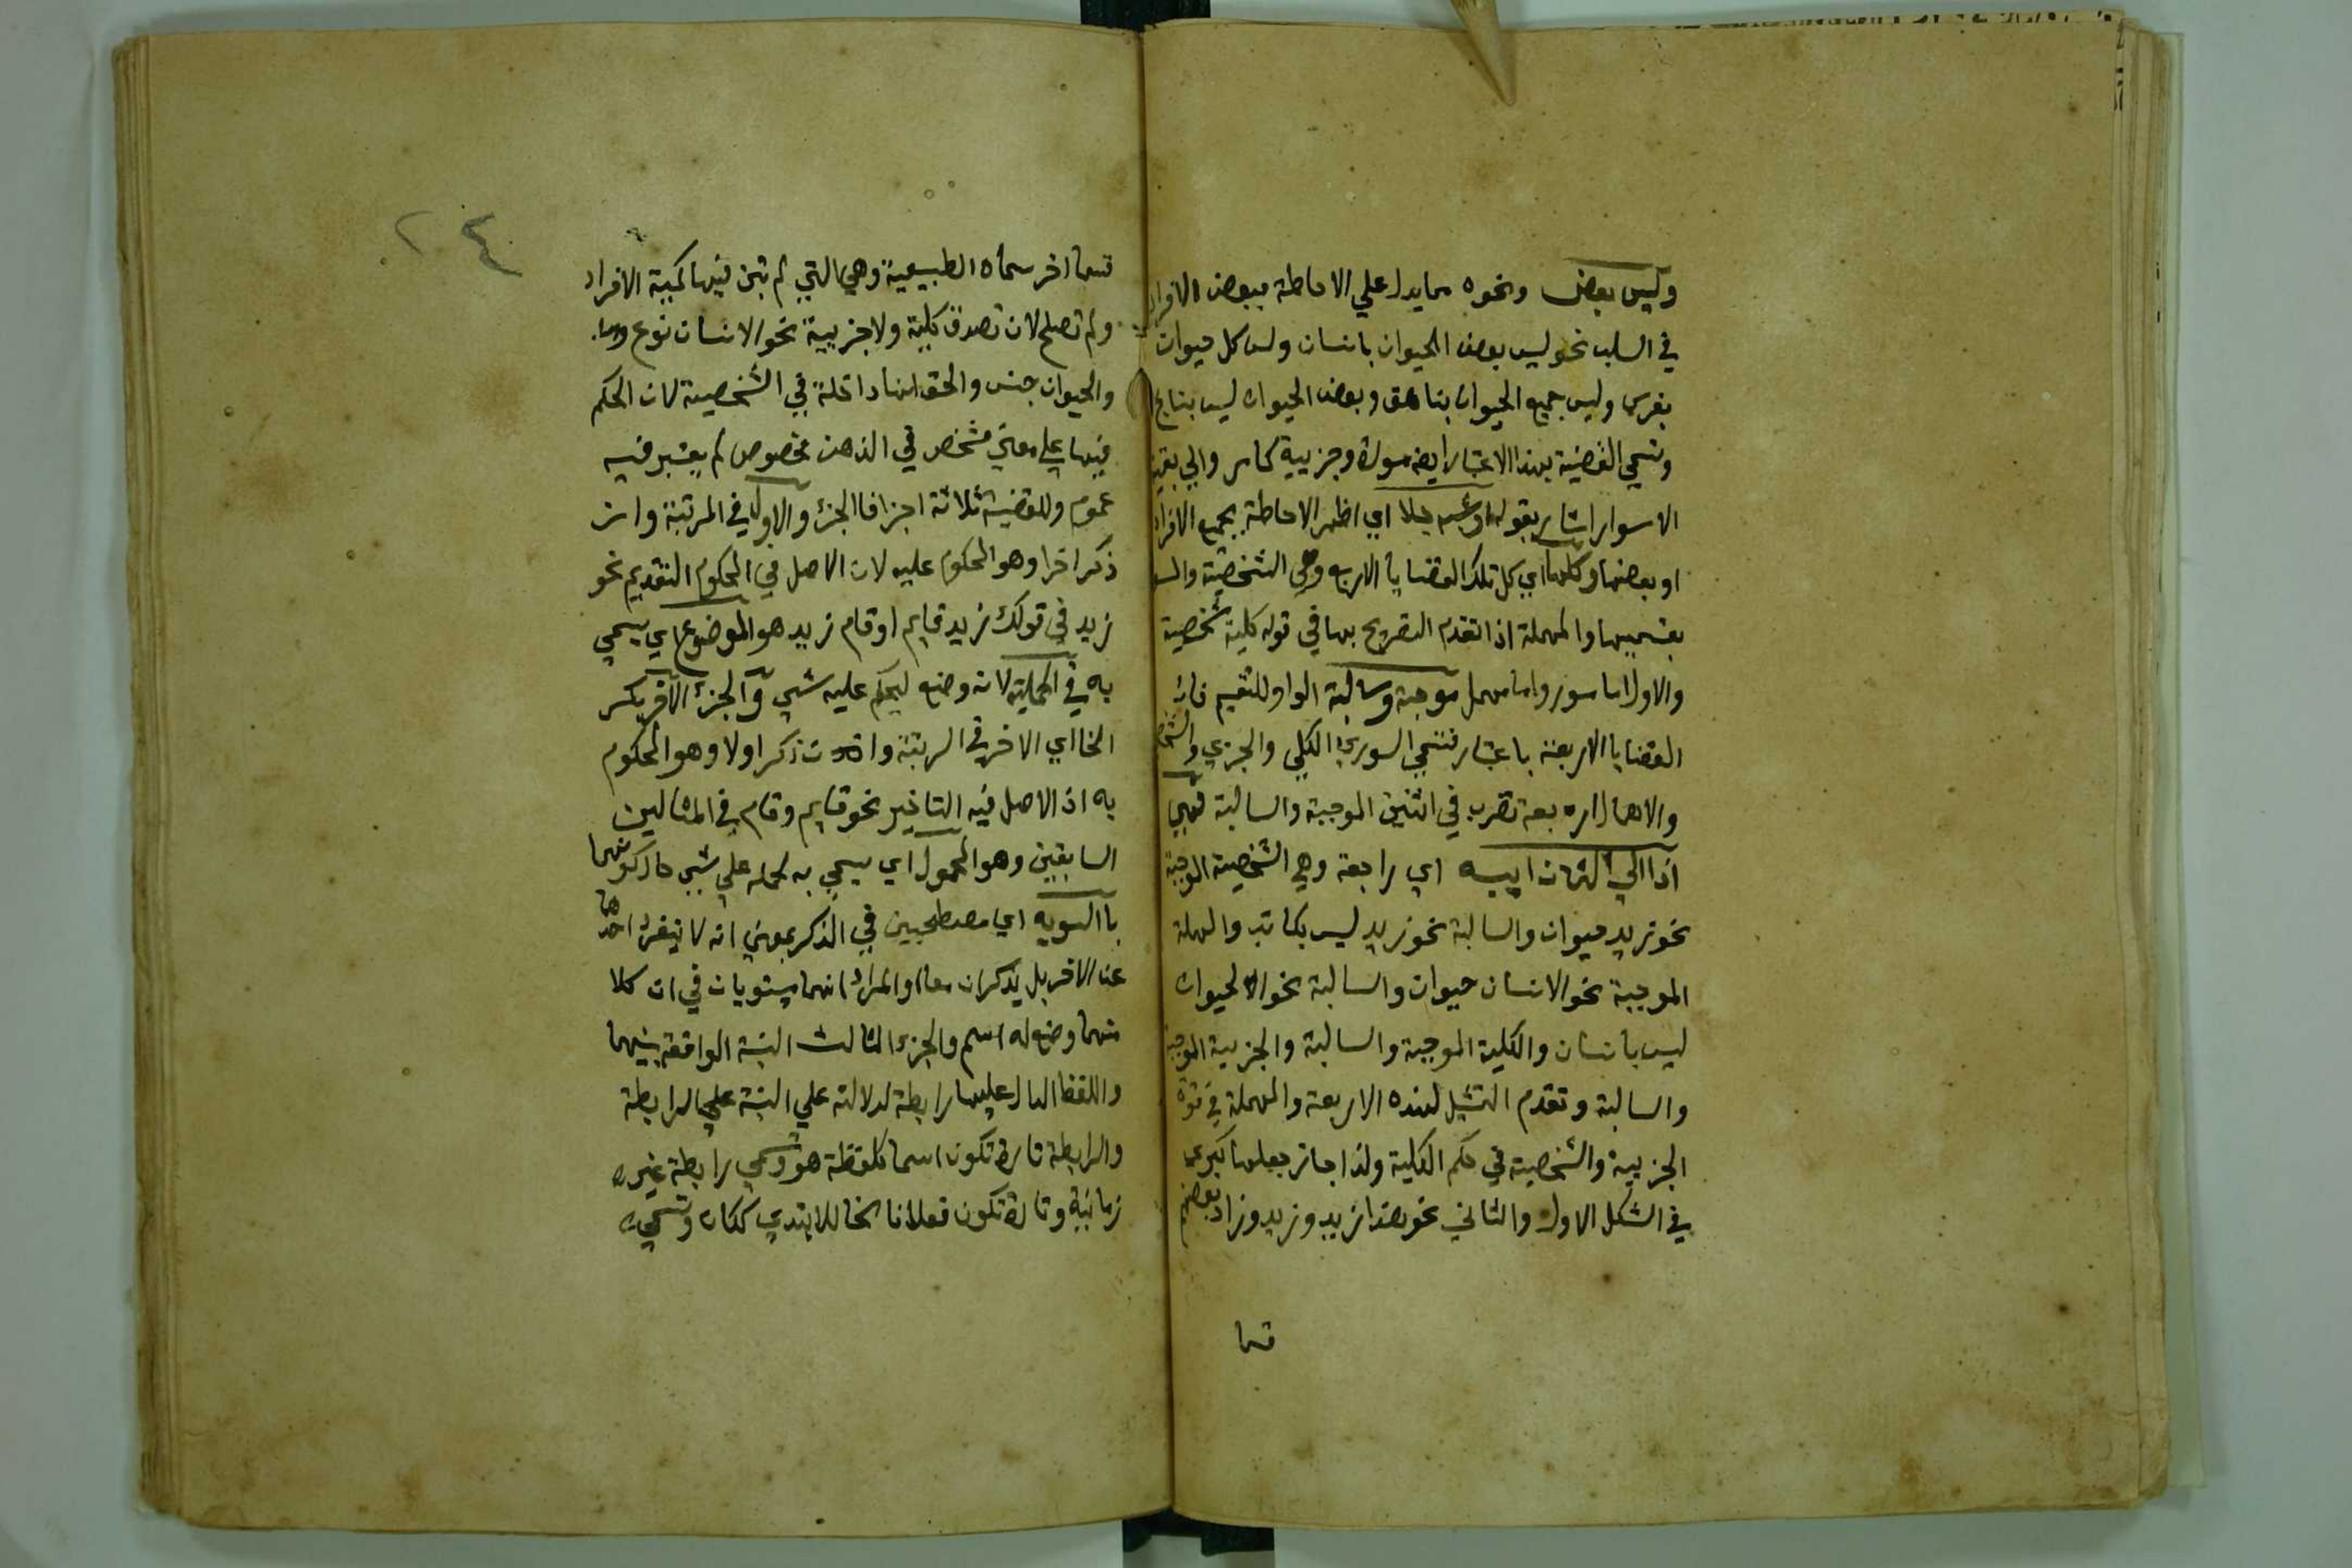 وليس بعض ونحوه مما يدل علي الاحاطة ببعض الافراد
في السلب نحو ليس بعض الحيوان بانسان وليس كل حيوان
بفرس وليس جميع الحيوان بناهق وبعض الحيوان ليس
وتسمي القضية بهذا الاعتبار ايضا مسورة وجزيية كامر والي بقية
الاسوار اشار بقوله او شبه جلا اي اظهر الاحاطة بجميع الافراد
او بعضها وكلها اي كل تلك القضايا الاربع وهي الشخصية والمسو
بقسميها والمهملة اذ اتقدم التصريح بها في قوله كلية شخصية
والاول اما مسور واما مهمل موجبة وسالبة الواو للتقسيم فان
القضايا الاربعة باعتبار قسمي السوري الكلي والجزي والشخص
والاهمال اربعة تضرب في اثنين الموجبة والسالبة فهي
اذا الي الثمان ايبه اي راجعة وهي الشخصية الموجبة
نحو زيد حيوان والسالبة نحو زيد ليس بكاتب والمهملة
الموجبة نحو الانسان حيوان والسالبة نحو الحيوان
ليس بانسان والكلية الموجبة والسالبة والجزيية الموجبة
والسالبة وتقدم التمثيل لهذه الاربعة والمهملة في قوة
الجزيية والشخصية في حكم الكلية ولذا جاز جعلها كبري
في الشكل الاول والثاني نحو هذا زيد وزيد وزاد بعضهم
قسما
٢٤
قسما اخر سماه الطبيعية وهي التي لم تبين فيها كمية الافراد
ولم تصلح لان تصدق كلية ولا جزيية نحو الانسان نوع
والحيوان جنس والحق انها داخلة في الشخصية لان الحكم
فيها علي معني مشخص في الذهن مخصوص لم يعتبر فيه
عموم وللقضية ثلاثة اجزا فالجزء والاول في المرتبة وان
ذكر اخرا وهو المحكوم عليه لان الاصل في المحكوم التقديم نحو
زيد في قولك زيد قايم او قام زيد هو الموضوع اي يسمي
به في الحملية لانه وضع ليحكم عليه بشي والجزء الاخر بكسر
الخا اي الاخر في الرتبة وان ذكر اولا وهو المحكوم
به اذ الاصل فيه التاخير نحو قايم وقام في المثالين
السابقين وهو المحمول اي يسمي به لحمله علي شي حال كونهما
باالسويه اي مصطحبين في الذكر بمعني انه لا ينفرد احدهما
عن الاخر بل يذكران معا او المراد انهما مستويان في ان كلا
منهما وضع له اسم والجزء الثالث النسبة الواقعة بينهما
واللفظ الدال عليها رابطة لدلالته علي النسبة علي الرابطة
والرابطة تارة تكون اسما كلفظة هو وتسمي رابطة غير
زمانية وتارة تكون فعلا ناسخا للابتدي ككان وتسمي